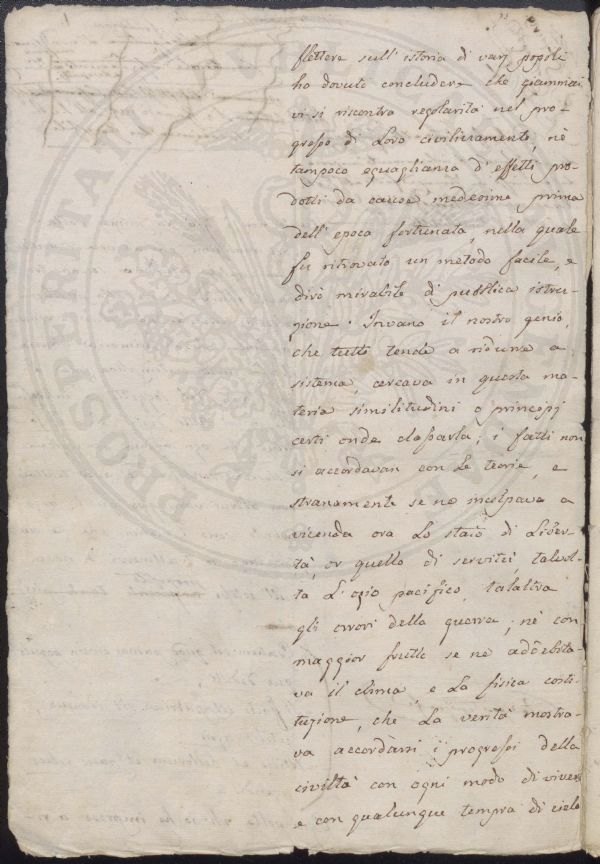 flettere sull'istoria di varj popoli
ha dovuto concludere che giammai
vi si riscontra regolarità nel pro-
gresso di loro civilizzamento, nè
tampoco eguaglianza d'effetti pro-
dotti da cause medesime prima
dell'epoca fortunata, nella quale
fu ritrovato un metodo facile, e
dirò mirabile di pubblica istru-
zione. Invano il nostro genio,
che tutto tende a ridurre a
sistema, cercava in questa ma-
teria similitudini o principj
certi onde classarla; i fatti non
si accordavan con le teorie, e
stranamente se ne incolpava a
vicenda ora lo stato di liber-
tà, or quello di servitù, talvol-
ta l'ozio pacifico, talaltra
gli orrori della guerra; nè con
maggior frutto se ne addebita-
va il clima, e la fisica costi-
tuzione, che la verità mostra-
va accordarsi i progressi della
civiltà con ogni modo di vivere
e con qualunque tempra di cielo
PROSPERITA